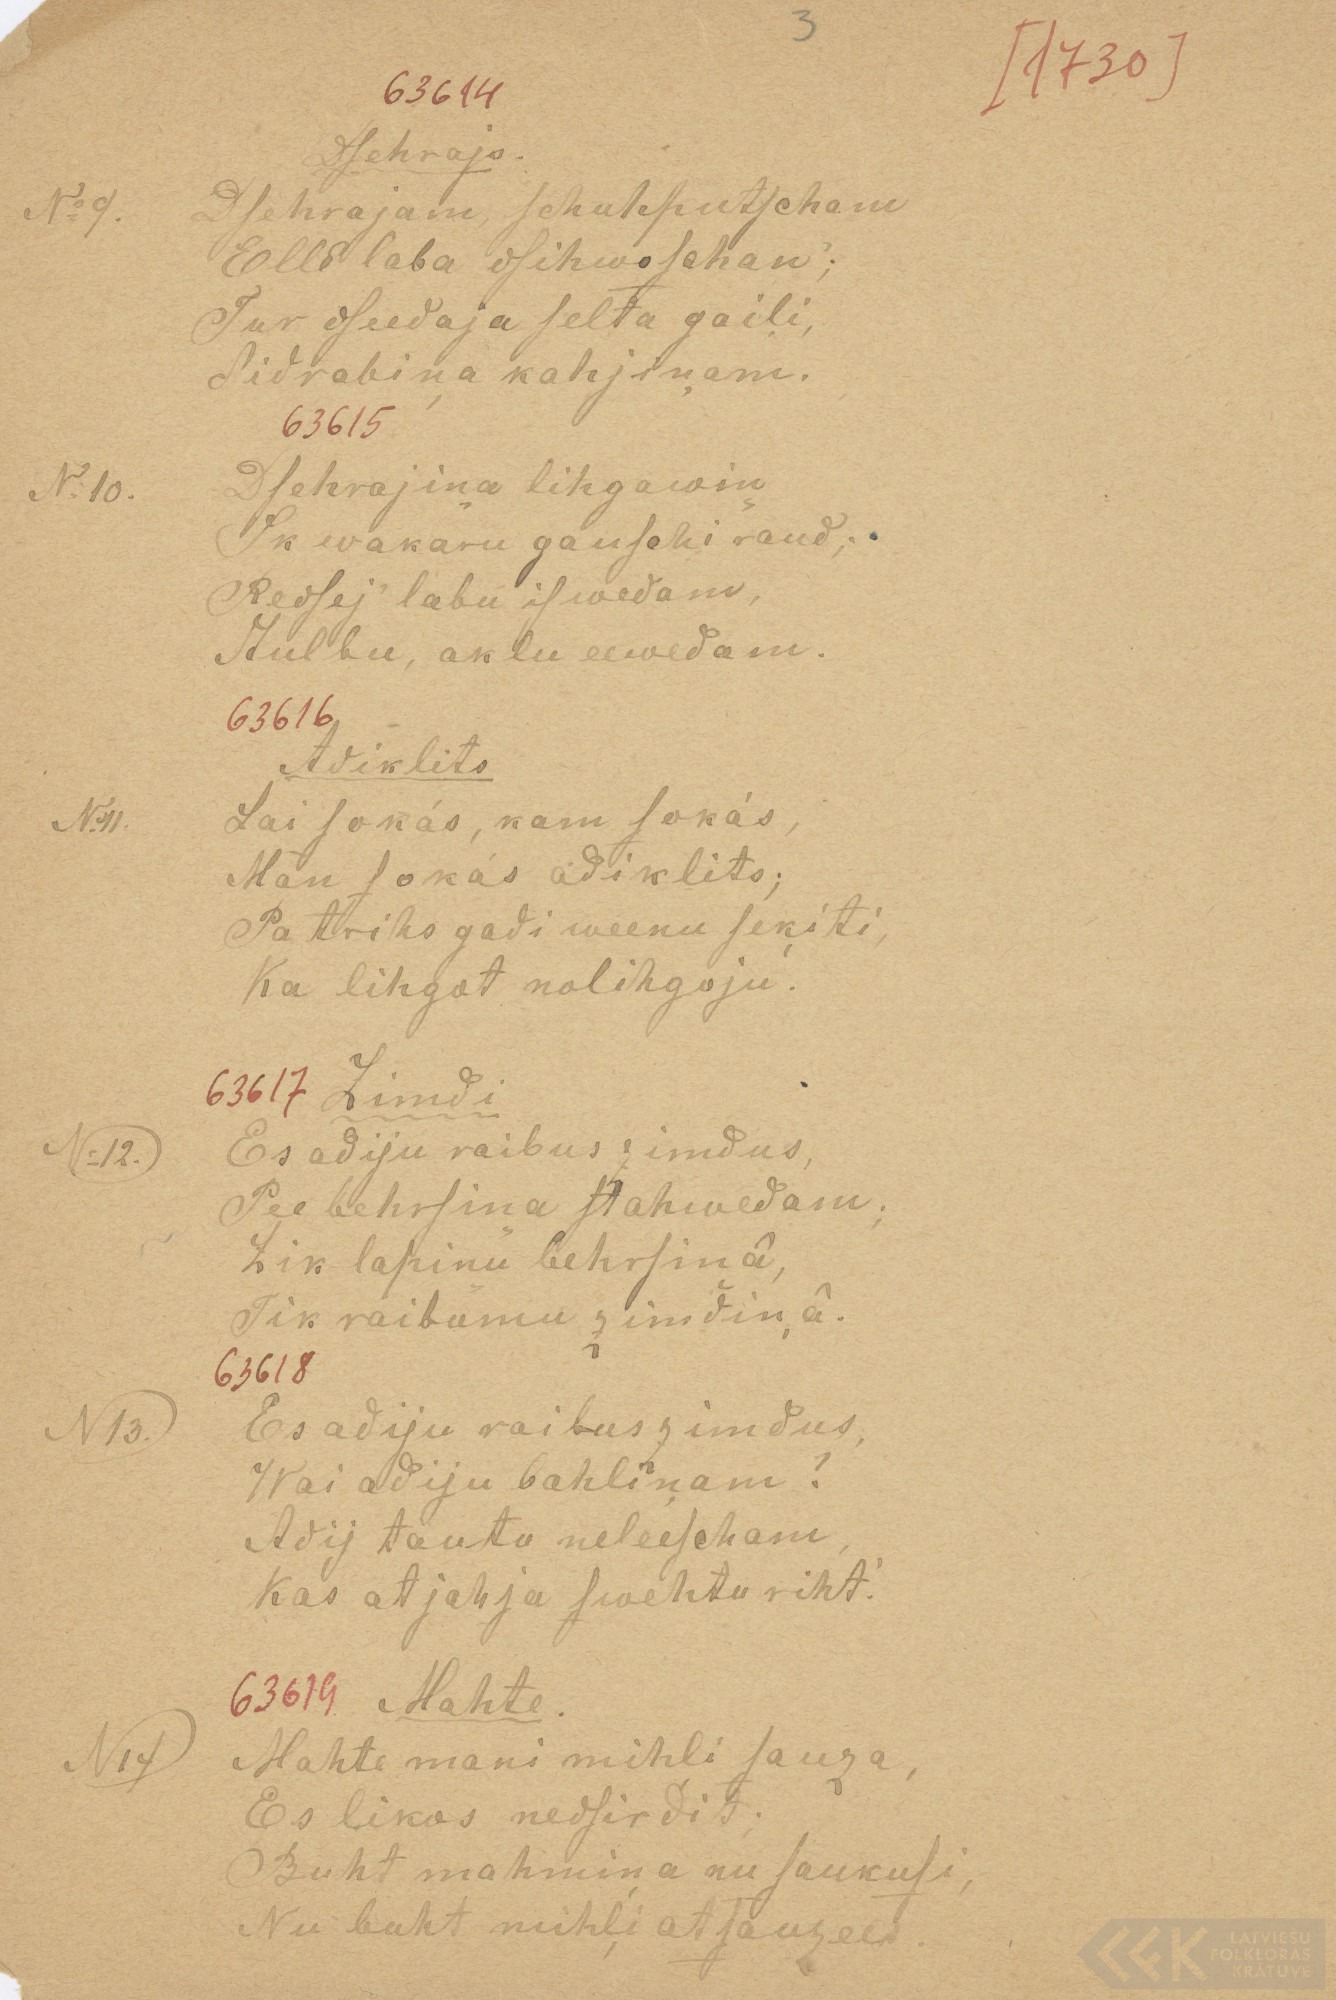 3
[1730]
63614
Dſehrajs.
№ 9. Dſehrajam, ſchuhputſcham
Ellê laba dſihwoſchan';
Tur dſeedaja ſelta gaiļi,
Sidrabiņa kahjiņam.
63615
№ 10. Dſehrajiņa lihgawiņ
Ik wakaru gauſchi raud;
Redſej' labu iſwedam,
Kulbu, aklu eewedam.
63616
Adiklits
№ 11. Lai ſokás, kam ſokás,
Man ſokás adiklits;
Pa trihs gadi weenu ſeķiti,
Ka lihgot nolihgoju.
63617 Zimdi
№ 12. Es adiju raibus zimdus,
Pee behrſina ſtahwedam;
Zik lapinu behrſinâ,
Tik raibumu zimdiņâ.
63618
N 13. Es adiju raibus zimdus,
Wai adiju bahliņam?
Adij tautu neleeſcham,
Kas atjahja ſwehtu riht'.
63619 Mahte.
N 14 Mahte mani mihli ſauza,
Es likos nedſirdit;
Buht mahmiņa nu ſaukuſi,
Nu buht mihļi atſauzees.
LATVIEŠU
FOLKLORAS
KRĀTUVE